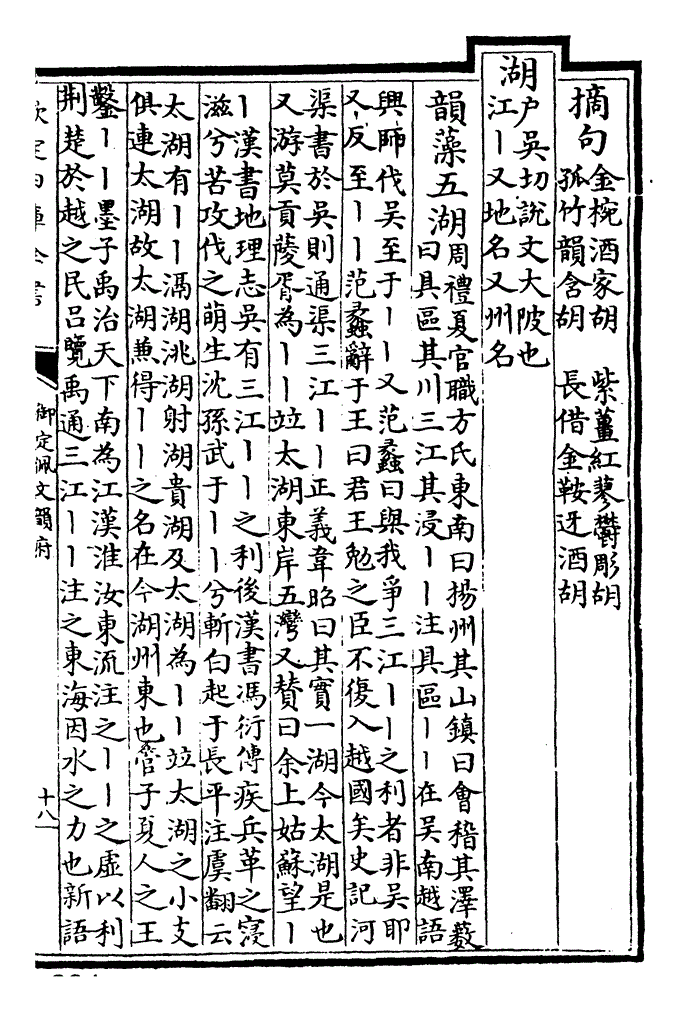 摘句金椀酒家胡　紫薑紅蓼鬱彫胡
孤竹韻含胡　長借金鞍迓酒胡
湖户吳切說文大陂也
江丨又地名又州名
韻藻五湖周禮夏官職方氏東南曰揚州其山鎮曰會稽其澤藪
曰具區其川三江其浸丨丨注具區丨丨在吳南越語
興師伐吳至于丨丨又范蠡曰與我爭三江丨丨之利者非吳耶
又反至丨丨范蠡辭于王曰君王勉之臣不復入越國矣史記河
渠書於吳則通渠三江丨丨正義韋昭曰其實一湖今太湖是也
又游莫貢菱胥為丨丨竝太湖東岸五灣又賛曰余上姑蘇望丨
丨漢書地理志吳有三江丨丨之利後漢書馮衍傳疾兵革之寖
滋兮苦攻伐之萌生沈孫武于丨丨兮斬白起于長平注虞翻云
太湖有丨丨滆湖洮湖射湖貴湖及太湖為丨丨竝太湖之小支
俱連太湖故太湖兼得丨丨之名在今湖州東也管子夏人之王
鑿丨丨墨子禹治天下南為江漢淮汝東流注之丨丨之虛以利
荆楚於越之民吕覽禹通三江丨丨注之東海因水之力也新語
欽定四庫全書
御定佩文韻府
十八